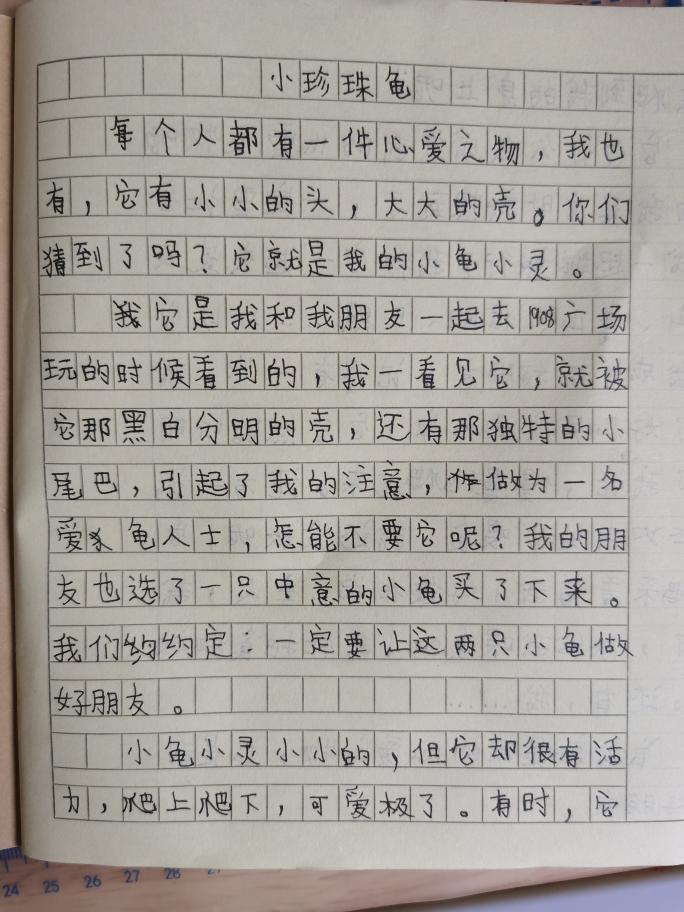 小珍珠龟
每个人都有一件心爱之物，我也
有，它有小小的头，大大的壳。你们
猜到了吗？它就是我的小龟小灵。
我它是我和我朋友一起去1908广场
玩的时候看到的，我一看见它，就被
它那黑白分明的壳，还有那独特的小
尾巴，引起了我的注意，做为一名
爱龟人士，怎能不要它呢？我的朋
友也选了一只中意的小龟买了下来。
我们约定：一定要让这两只小龟做
好朋友。
小龟小灵小小的，但它却很有活
力，爬上爬下，可爱极了。有时，它
24 25 26 27 28